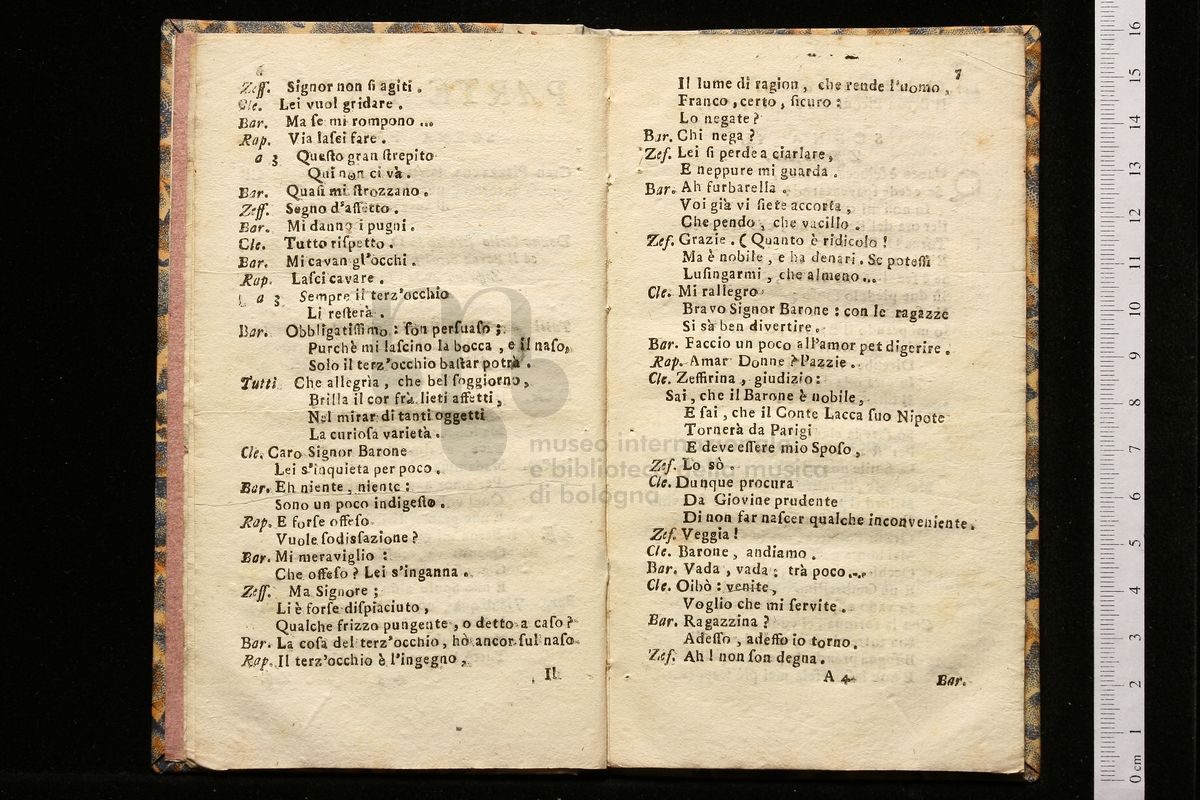 6
Zeff. Signor non ſi agiti.
Cle. Lei vuol gridare.
Bar. Ma ſe mi rompono ...
Rap. Via laſci fare.
a 3 Queſto gran ſtrepito
Qui non ci và.
Bar. Quaſi mi ſtrozzano.
Zeff. Segno d'affetto.
Bar. Mi danno i pugni.
Cle. Tutto riſpetto.
Bar. Mi cavan gl'occhi.
Rap. Laſci cavare.
a 3 Sempre il terz'occhio
Li reſterà.
Bar. Obbligatiſſimo: ſon perſuaſo;
Purchè mi laſcino la bocca, e il naſo,
Solo il terz'occhio baſtar potrà.
Tutti Che allegrìa, che bel ſoggiorno,
Brilla il cor frà lieti affetti,
Nel mirar di tanti oggetti
La curioſa varietà.
Cle. Caro Signor Barone
Lei s'inquieta per poco.
Bar. Eh niente, niente:
Sono un poco indigeſto.
Rap. E forſe offeſo
Vuole ſodisfazione?
Bar. Mi meraviglio:
Che offeſo? Lei s'inganna.
Zeff. Ma Signore;
Li è forſe diſpiaciuto,
Qualche frizzo pungente, o detto a caſo?
Bar. La coſa del terz'occhio, hò ancor ſul naſo
Rap. Il terz'occhio è l'ingegno,
Il
7
Il lume di ragion, che rende l'uomo,
Franco, certo, ſicuro:
Lo negate?
Bar. Chi nega?
Zef. Lei ſi perde a ciarlare,
E neppure mi guarda.
Bar. Ah furbarella.
Voi già vi ſiete accorta,
Che pendo, che vacillo.
Zef. Grazie. (Quanto è ridicolo!
Ma è nobile, e ha denari. Se poteſſi
Luſingarmi, che almeno...
Cle. Mi rallegro
Bravo Signor Barone: con le ragazze
Si sà ben divertire.
Bar. Faccio un poco all'amor pet digerire.
Rap. Amar Donne? Pazzie.
Cle. Zeffirina, giudizio:
Sai, che il Barone è nobile,
E ſai, che il Conte Lacca ſuo Nipote
Tornerà da Parigi
E deve eſſere mio Spoſo,
Zef. Lo sò.
Cle. Dunque procura
Da Giovine prudente
Di non far naſcer qualche inconveniente.
Zef. Veggia!
Cle. Barone, andiamo.
Bar. Vada, vada: trà poco...
Cle. Oibò: venite,
Voglio che mi ſervite.
Bar. Ragazzina?
Adeſſo, adeſſo io torno.
Zef. Ah! non ſon degna.
A 4 Bar.
museo internazionale
e biblioteca della musica
di bologna
0 cm 1 2 3 4 5 6 7 8 9 10 11 12 13 14 15 16